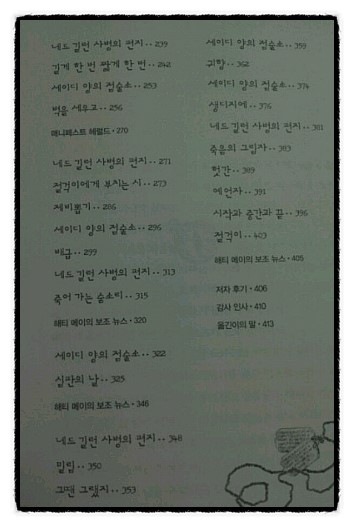 네드 길런 사병의 편지 ·· 239
길게 한 번 짧게 한 번 ·· 242
세이디 양의 점술소 ·· 253
벽을 세우고 ·· 256
매니페스트 헤럴드 · 270
네드 길런 사병의 편지 ·· 271
절걱이에게 부치는 시 ·· 273
제비뽑기 ·· 286
세이디 양의 점술소 ·· 296
배급 ·· 299
네드 길런 사병의 편지 ·· 313
죽어 가는 숨소리 ·· 315
해티 메이의 보조 뉴스 · 320
세이디 양의 점술소 ·· 322
심판의 날 ·· 325
해티 메이의 보조 뉴스 · 346
네드 길런 사병의 편지 ·· 348
밀림 ·· 350
그땐 그랬지 ·· 353
세이디 양의 점술소 ·· 359
귀향 ·· 362
세이디 양의 점술소 ·· 374
생디지에 ·· 376
네드 길런 사병의 편지 ·· 381
죽음의 그림자 ·· 383
헛간 ·· 389
예언자 ·· 391
시작과 중간과 끝 ·· 396
절걱이 ·· 403
해티 메이의 보조 뉴스 · 405
저자 후기 · 406
감사 인사 · 410
옮긴이의 말 · 413